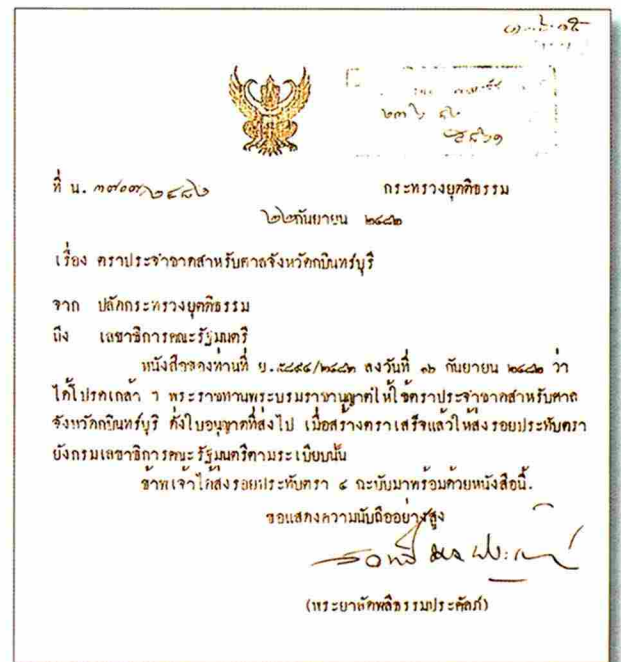 ที่ น. ๓๗๐๓/๒๔๘๒
กระทรวงยุตติธรรม
๒๒กันยายน ๒๔๘๒
เรื่อง ตราประจำชาดสำหรับศาลจังหวัดกบินทร์บุรี
จาก ปลัดกระทรวงยุตติธรรม
ถึง เลขาธิการคณะรัฐมนตรี
หนังสือของท่านที่ ลงวันที่ ๑๖ กันยายน ๒๔๘๒ ว่า
ได้โปรดเกล้า ฯ พระราชทานพระบรมราชานุญาตให้ใช้ตราประจำชาดสำหรับศาล
จังหวัดกบินทร์บุรี ดั่งใบอนุญาตที่ส่งไป เมื่อสร้างตราเสร็จแล้วให้ส่งรอยประทับตรา
ยังกรมเลขาธิการคณะรัฐมนตรีตามระเบียบนั้น
ข้าพเจ้าได้ส่งรอยประทับตรา ๔ ฉะบับมาพร้อมด้วยหนังสือนี้.
ขอแสดงความนับถืออย่างสูง
(พระยาลัดพลีธรรมประคัลภ์)